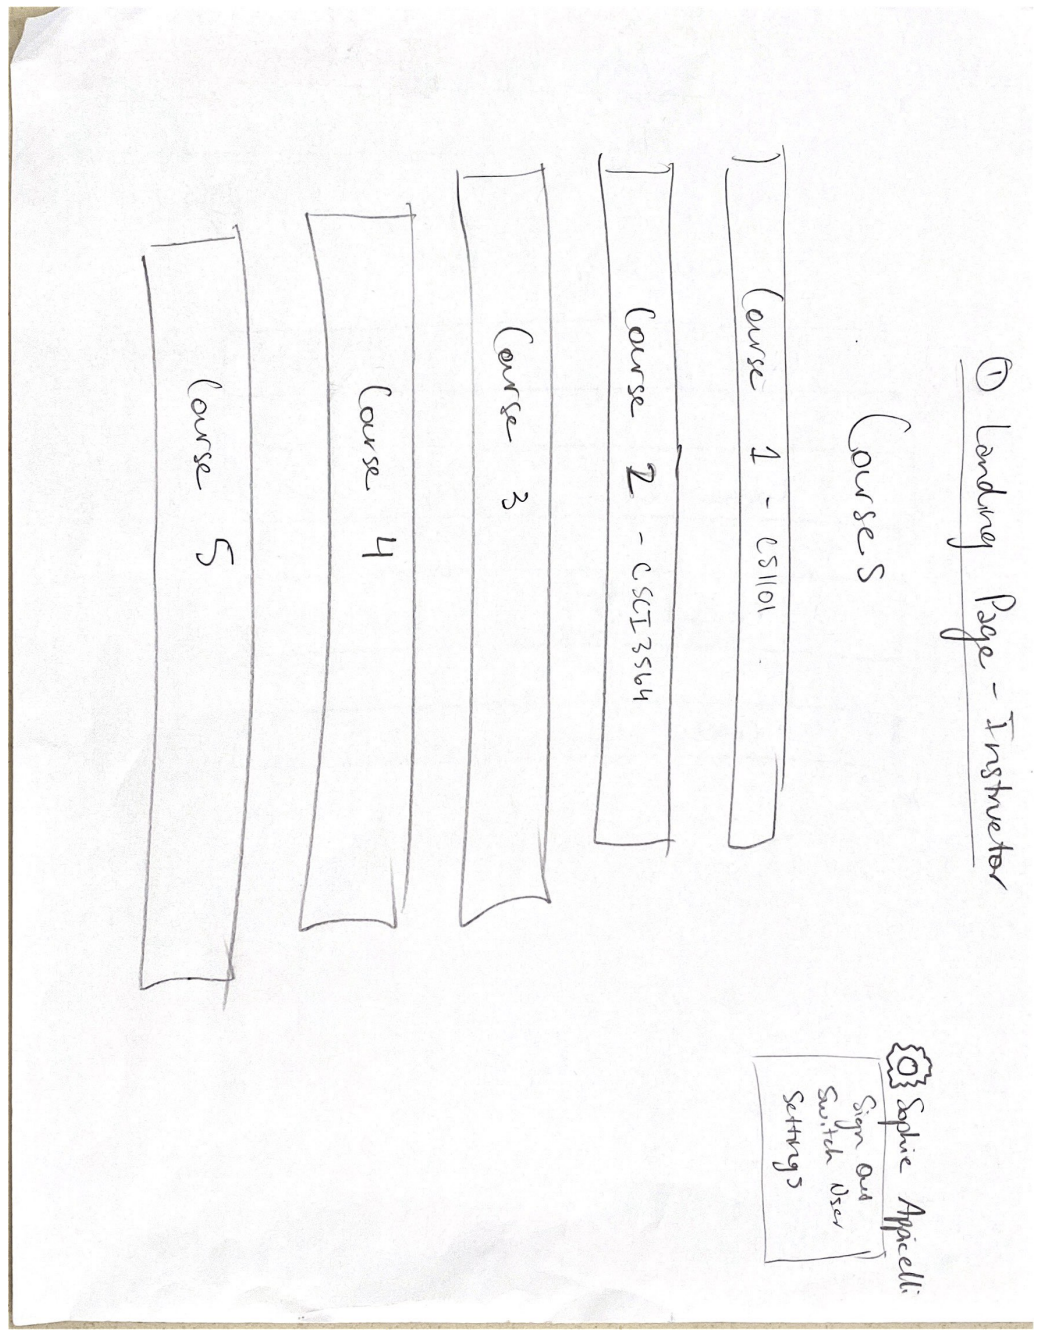 ① Landing Page - Instructor
Sophie Appicelli
Sign out
Switch User
Settings
Courses
Course 1 - CS1101
Course 2 - CSCI3564
Course 3
Course 4
Course 5